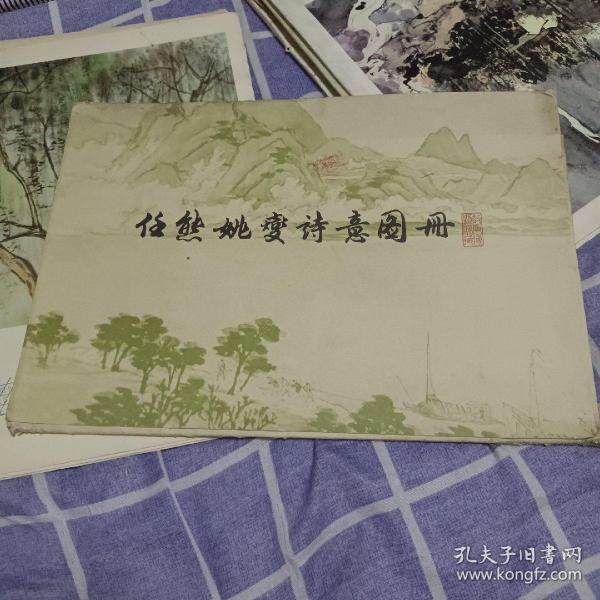 任熊姚燮詩意图冊
孔夫子旧書网
www.kongfz.com